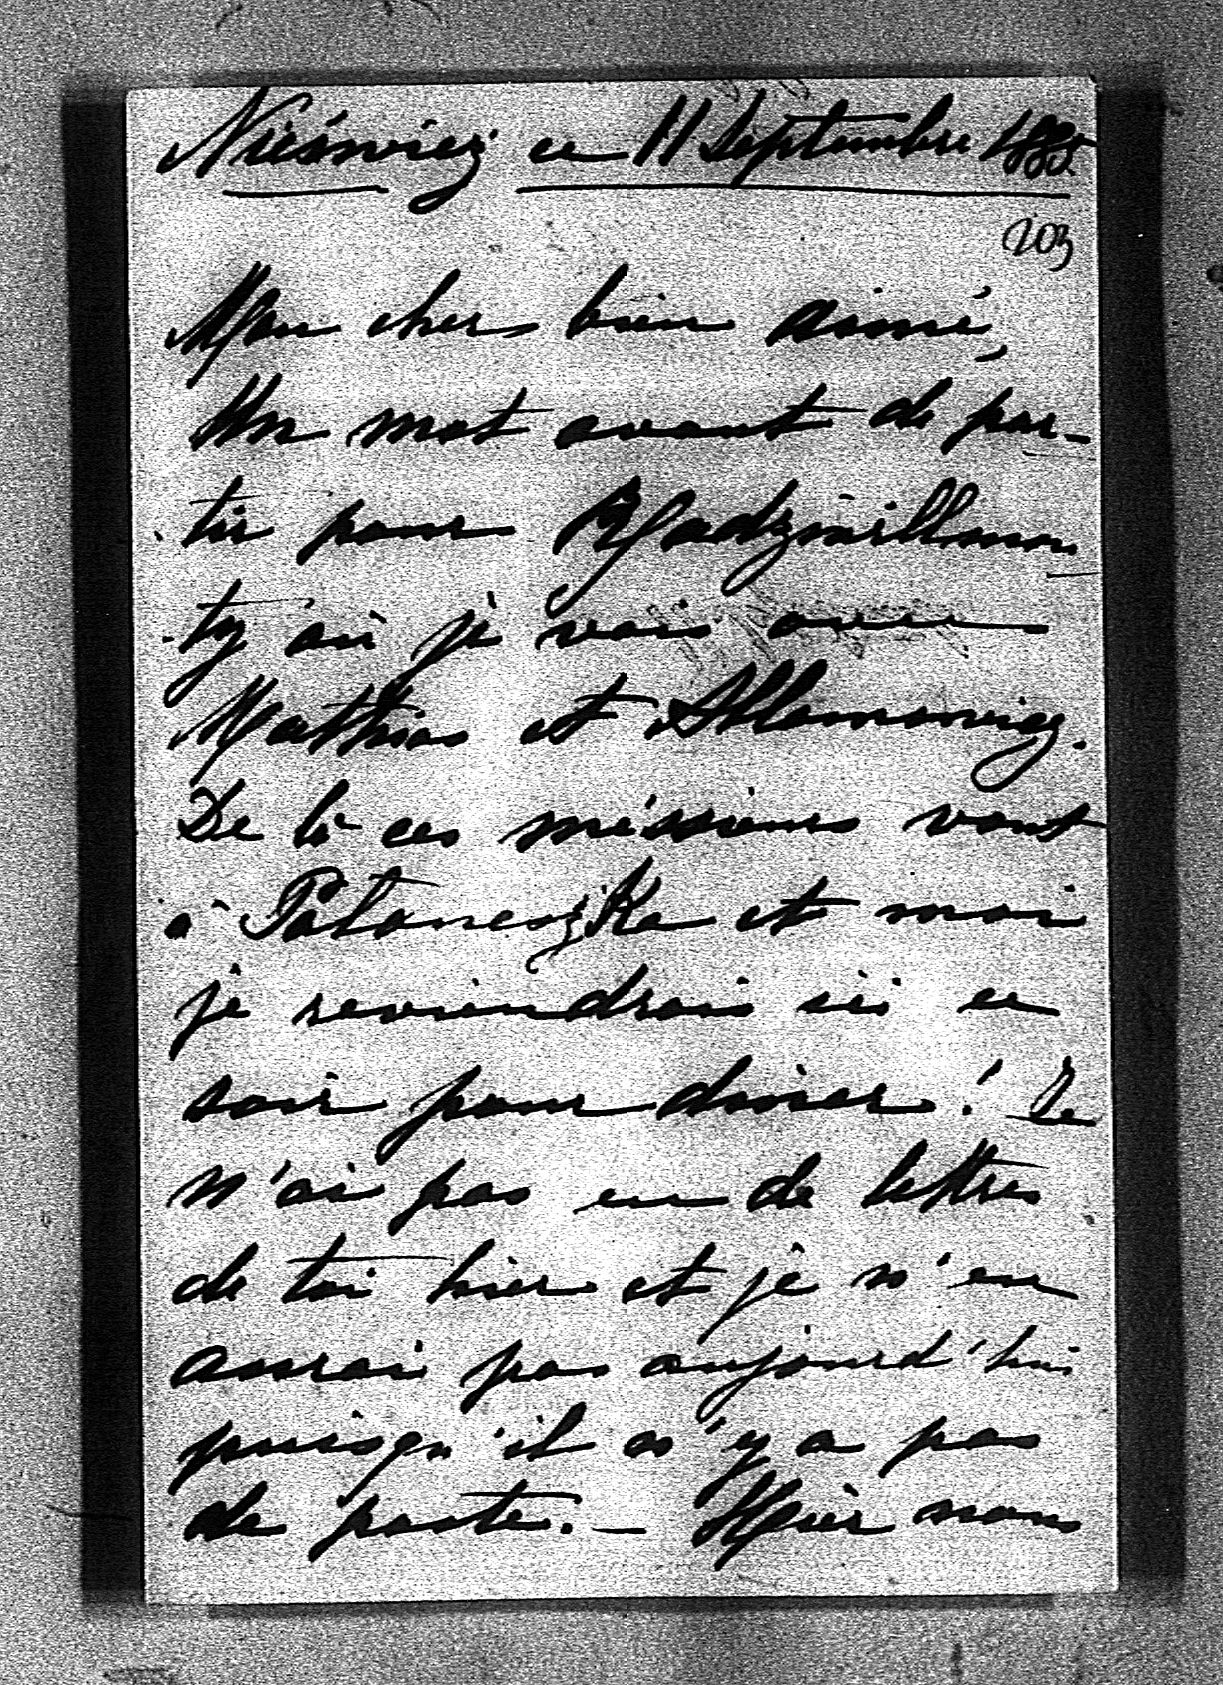 Nieśwież ce 11 Septembre 1885
203
Mon cher bien aimé,
Un mot avant de par-
tir pour Radziwillmon
ty où je vais avec
Mathias et Ablamowicz.
De là ces messieurs vont
à Potoneszka et moi
je reviendrais ici ce
soir pour diner! Je
n'ai pas eu de lettres
de toi hier et je n'en
aurai pas aujourd'hui
puisqu'il n'y a pas
de poste. — Hier nous